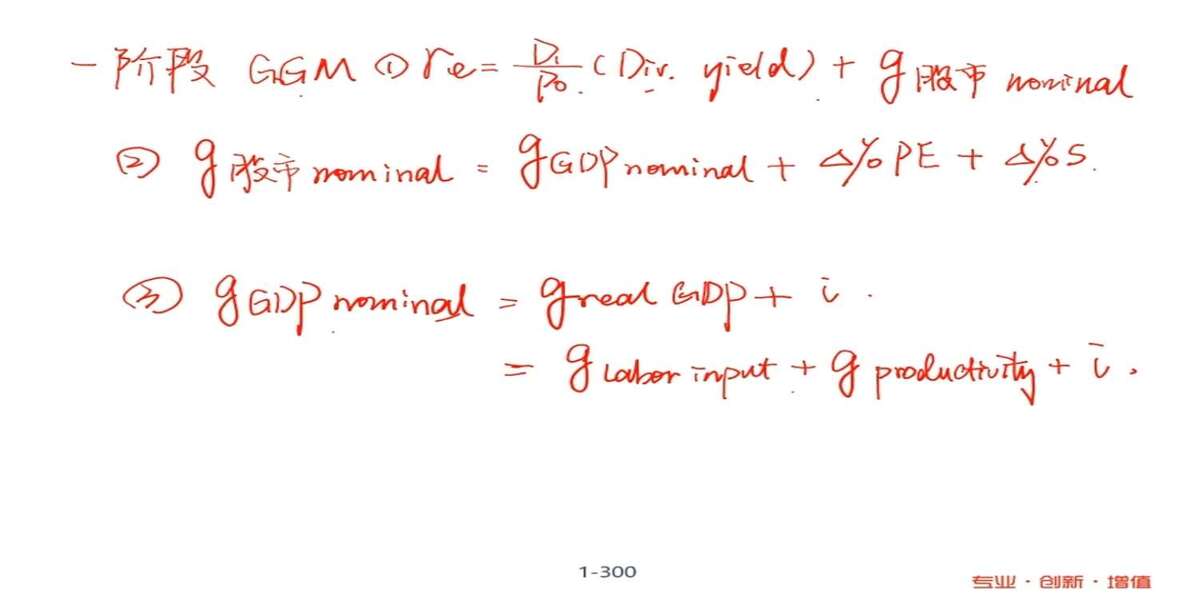 一阶段 GGM ① re = D₁/P₀ (Div. yield) + g股市 nominal
② g股市 nominal = gGDP nominal + Δ%PE + Δ%S.
③ gGDP nominal = greal GDP + i.
= glabor input + gproductivity + i.
1-300
专业·创新·增值